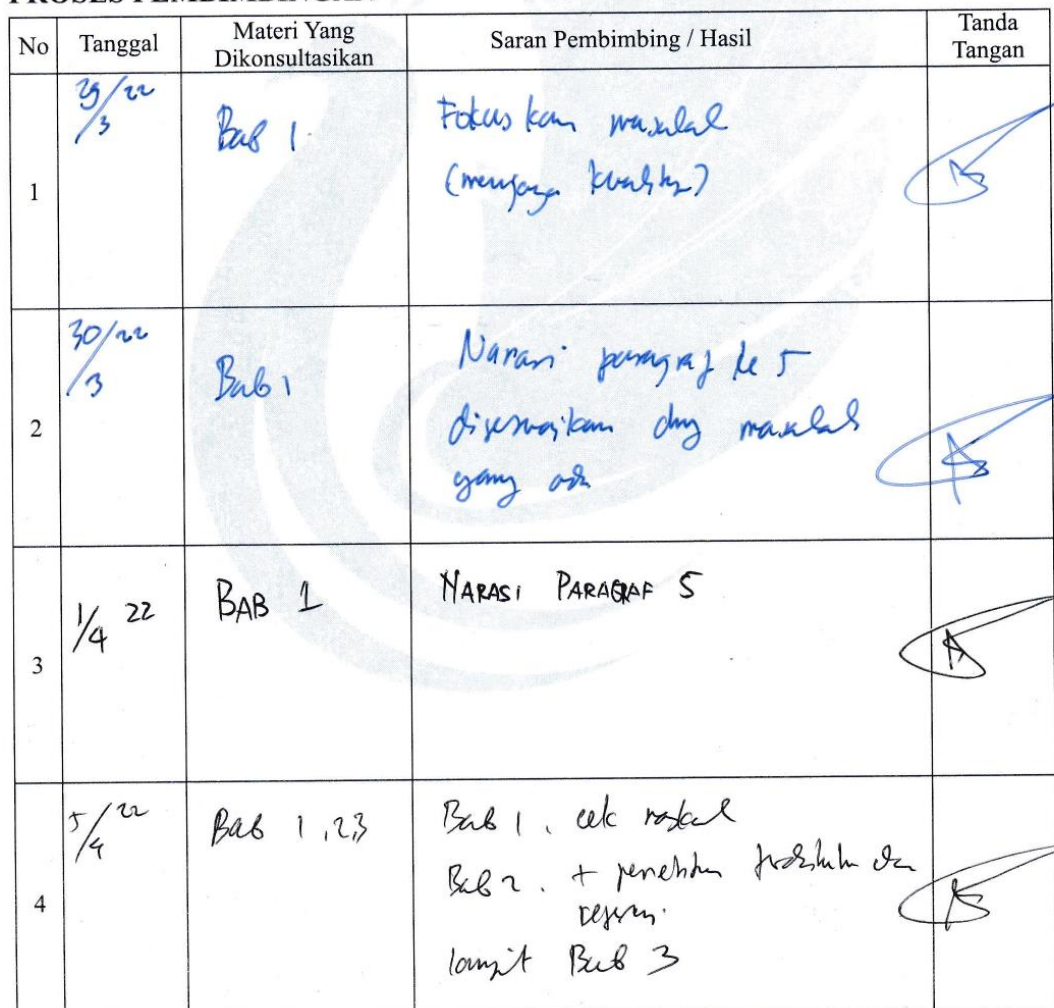 No Tanggal Materi Yang Dikonsultasikan Saran Pembimbing / Hasil Tanda Tangan
1
29/3 22
Bab 1
Fokuskan masalah
(menjaga kualitas)
2
30/3 22
Bab 1
Narasi paragraf ke 5
disesuaikan dng masalah
yang ada
3
1/4 22
BAB 1
NARASI PARAGRAF 5
4
5/4 22
Bab 1,2,3
Bab 1. cek naskah
Bab 2. + penelitian
lanjut Bab 3